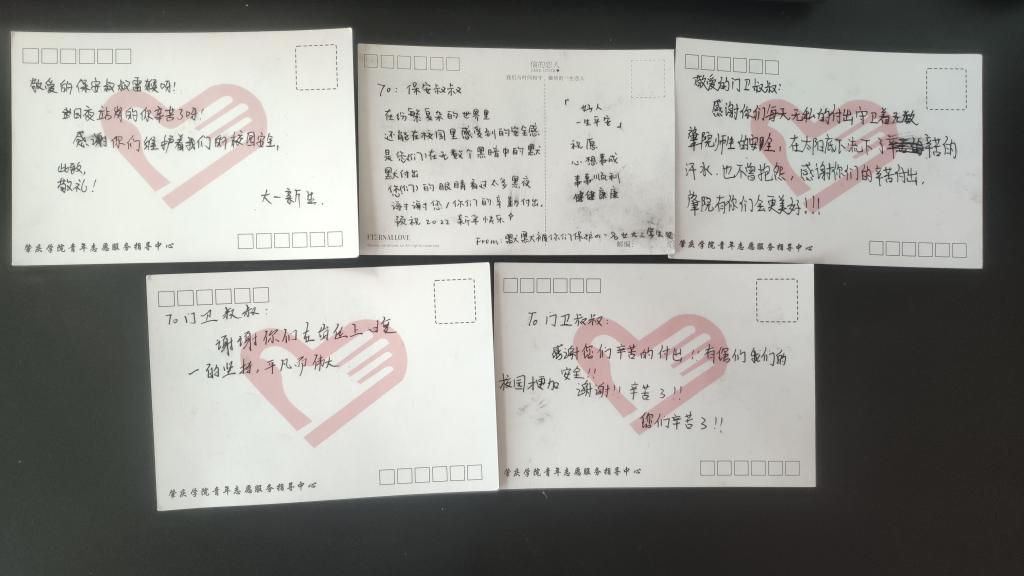 敬爱的保安叔叔雷猴呀!
日夜站岗的你辛苦了呀!
感谢你们维护着我们的校园安全,
此致,
敬礼!
大一新生.
肇庆学院青年志愿服务指导中心
信的恋人
To: 保安叔叔
在纷繁复杂的世界里
还能在校园里感受到的安全感
是您们在无数个黑暗中的默
默付出
您(们)的眼睛看过太多黑夜
谢谢您/你们的辛勤付出.
预祝2022新年快乐
「好人
一生平安」
祝愿
心想事成
事事顺利
健健康康
ETERNALLOVE
From: 默默被你们保护的一名
邮编:
敬爱的门卫叔叔:
感谢你们每天无私的付出守卫着无数
肇院师生的安全, 在太阳底下流下了辛苦的
汗水, 也不曾抱怨, 感谢你们的辛苦付出,
肇院有你们会更美好!!!
肇庆学院青年志愿服务指导中心
To 门卫叔叔:
谢谢你们在岗位上始
一的坚持, 平凡而伟大
肇庆学院青年志愿服务指导中心
To 门卫叔叔:
感谢您们辛苦的付出!! 有您们我们的
校园才更加安全!!
谢谢!! 辛苦了!!
您们辛苦了!!
肇庆学院青年志愿服务指导中心